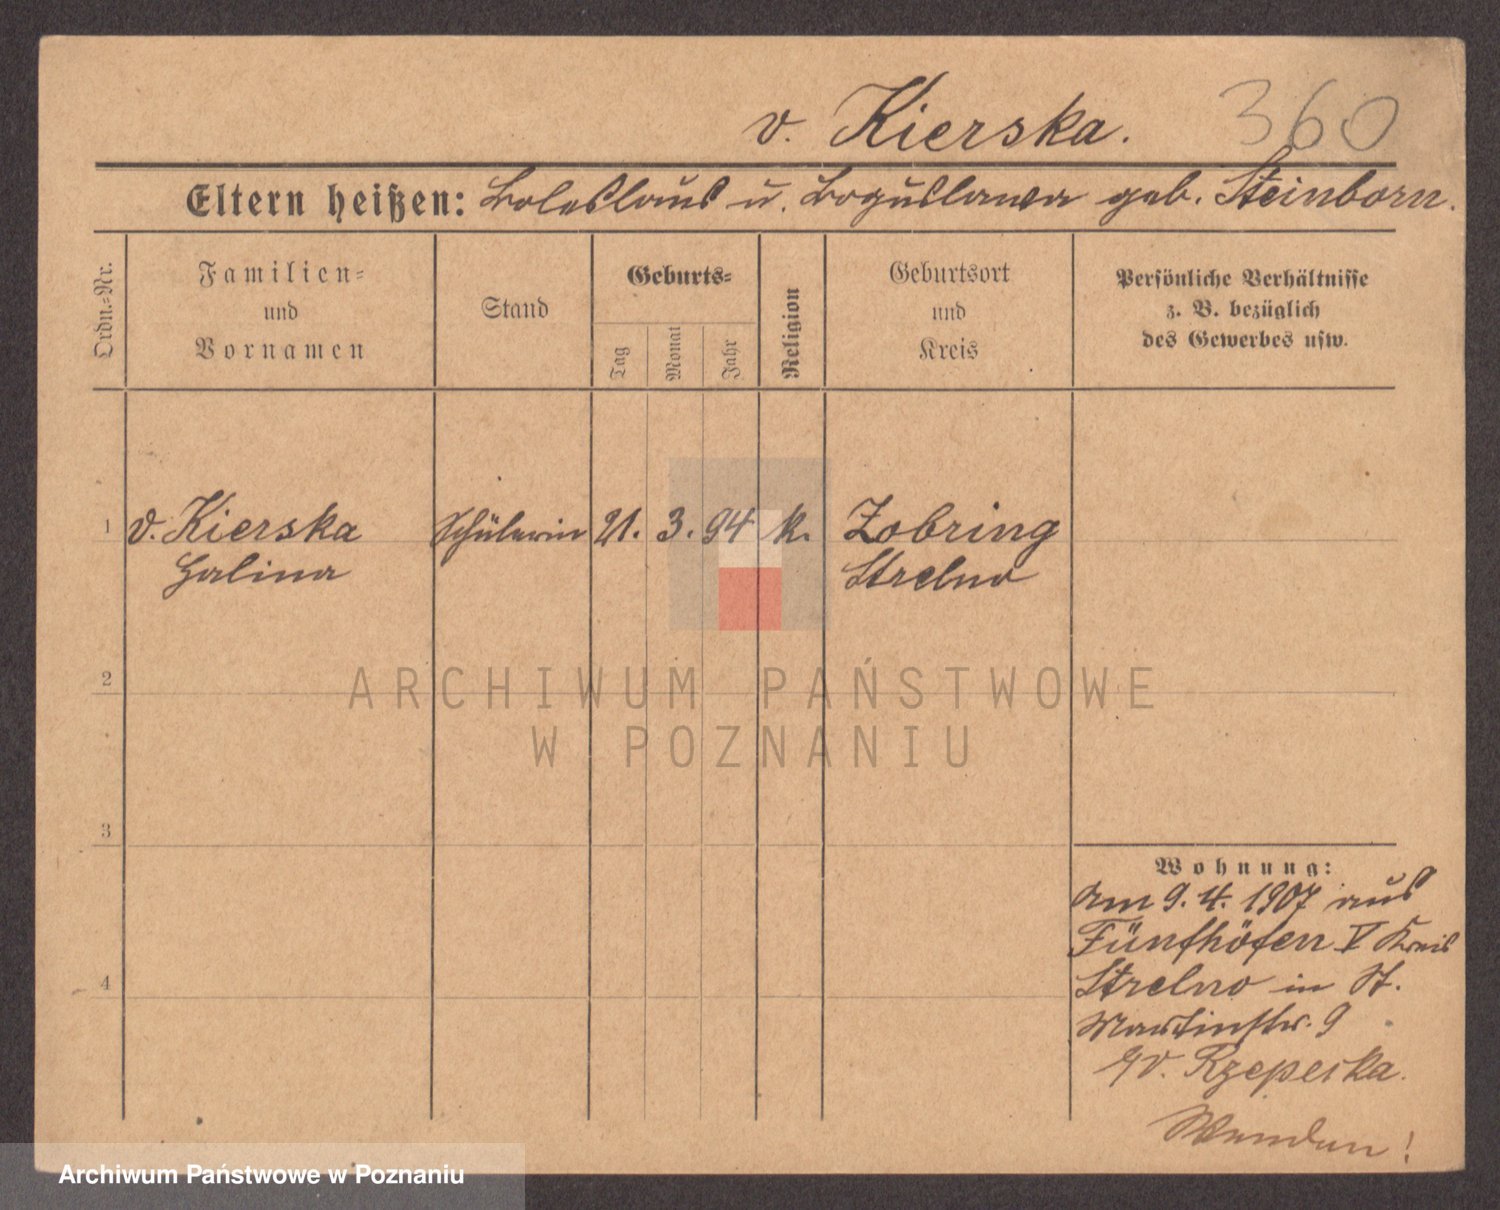 v. Kierska.
360
Eltern heißen: Boleslaus u. Boguslawa geb. Steinborn.
Ordn.-Nr.
Familien-
und
Vornamen
Stand
Geburts-
Tag
Monat
Jahr
Religion
Geburtsort
und
Kreis
Persönliche Verhältnisse
z. B. bezüglich
des Gewerbes usw.
1 v. Kierska Schülerin 21. 3. 94 k. Zobring
Halina Strelno
2
3
4
Wohnung:
Am 9. 4. 1907 aus
Fünfhöfen V Kreis
Strelno in St.
Martinstr. 9
Rzepecka.
Wenden!
ARCHIWUM PAŃSTWOWE
W POZNANIU
Archiwum Państwowe w Poznaniu